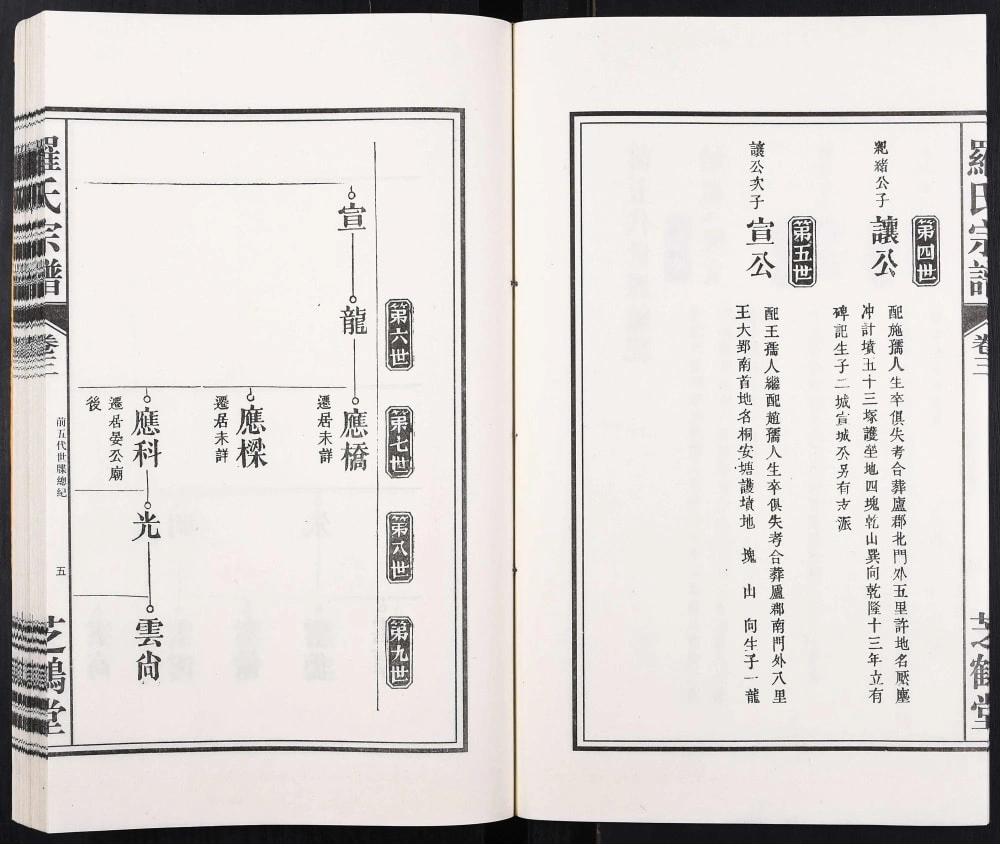 羅氏宗譜
卷三
芝鶴堂
第四世
紀緒公子
讓公
配施孺人生卒俱失考合葬廬郡北門外五里許地名厫塵
冲計墳五十三塚護塋地四塊乾山巽向乾隆十三年立有
碑記生子二城宣城公另有支派
第五世
讓公次子
宣公
配王孺人繼配趙孺人生卒俱失考合葬廬郡南門外八里
王大郢南首地名桐安塘護墳地 塊 山 向生子一龍
第六世
第七世
第八世
第九世
宣
龍
應橋
遷居未詳
應樑
遷居未詳
應科
遷居晏公廟
後
光
雲尙
羅氏宗譜
卷三
前五代世牒總紀
五
芝鶴堂